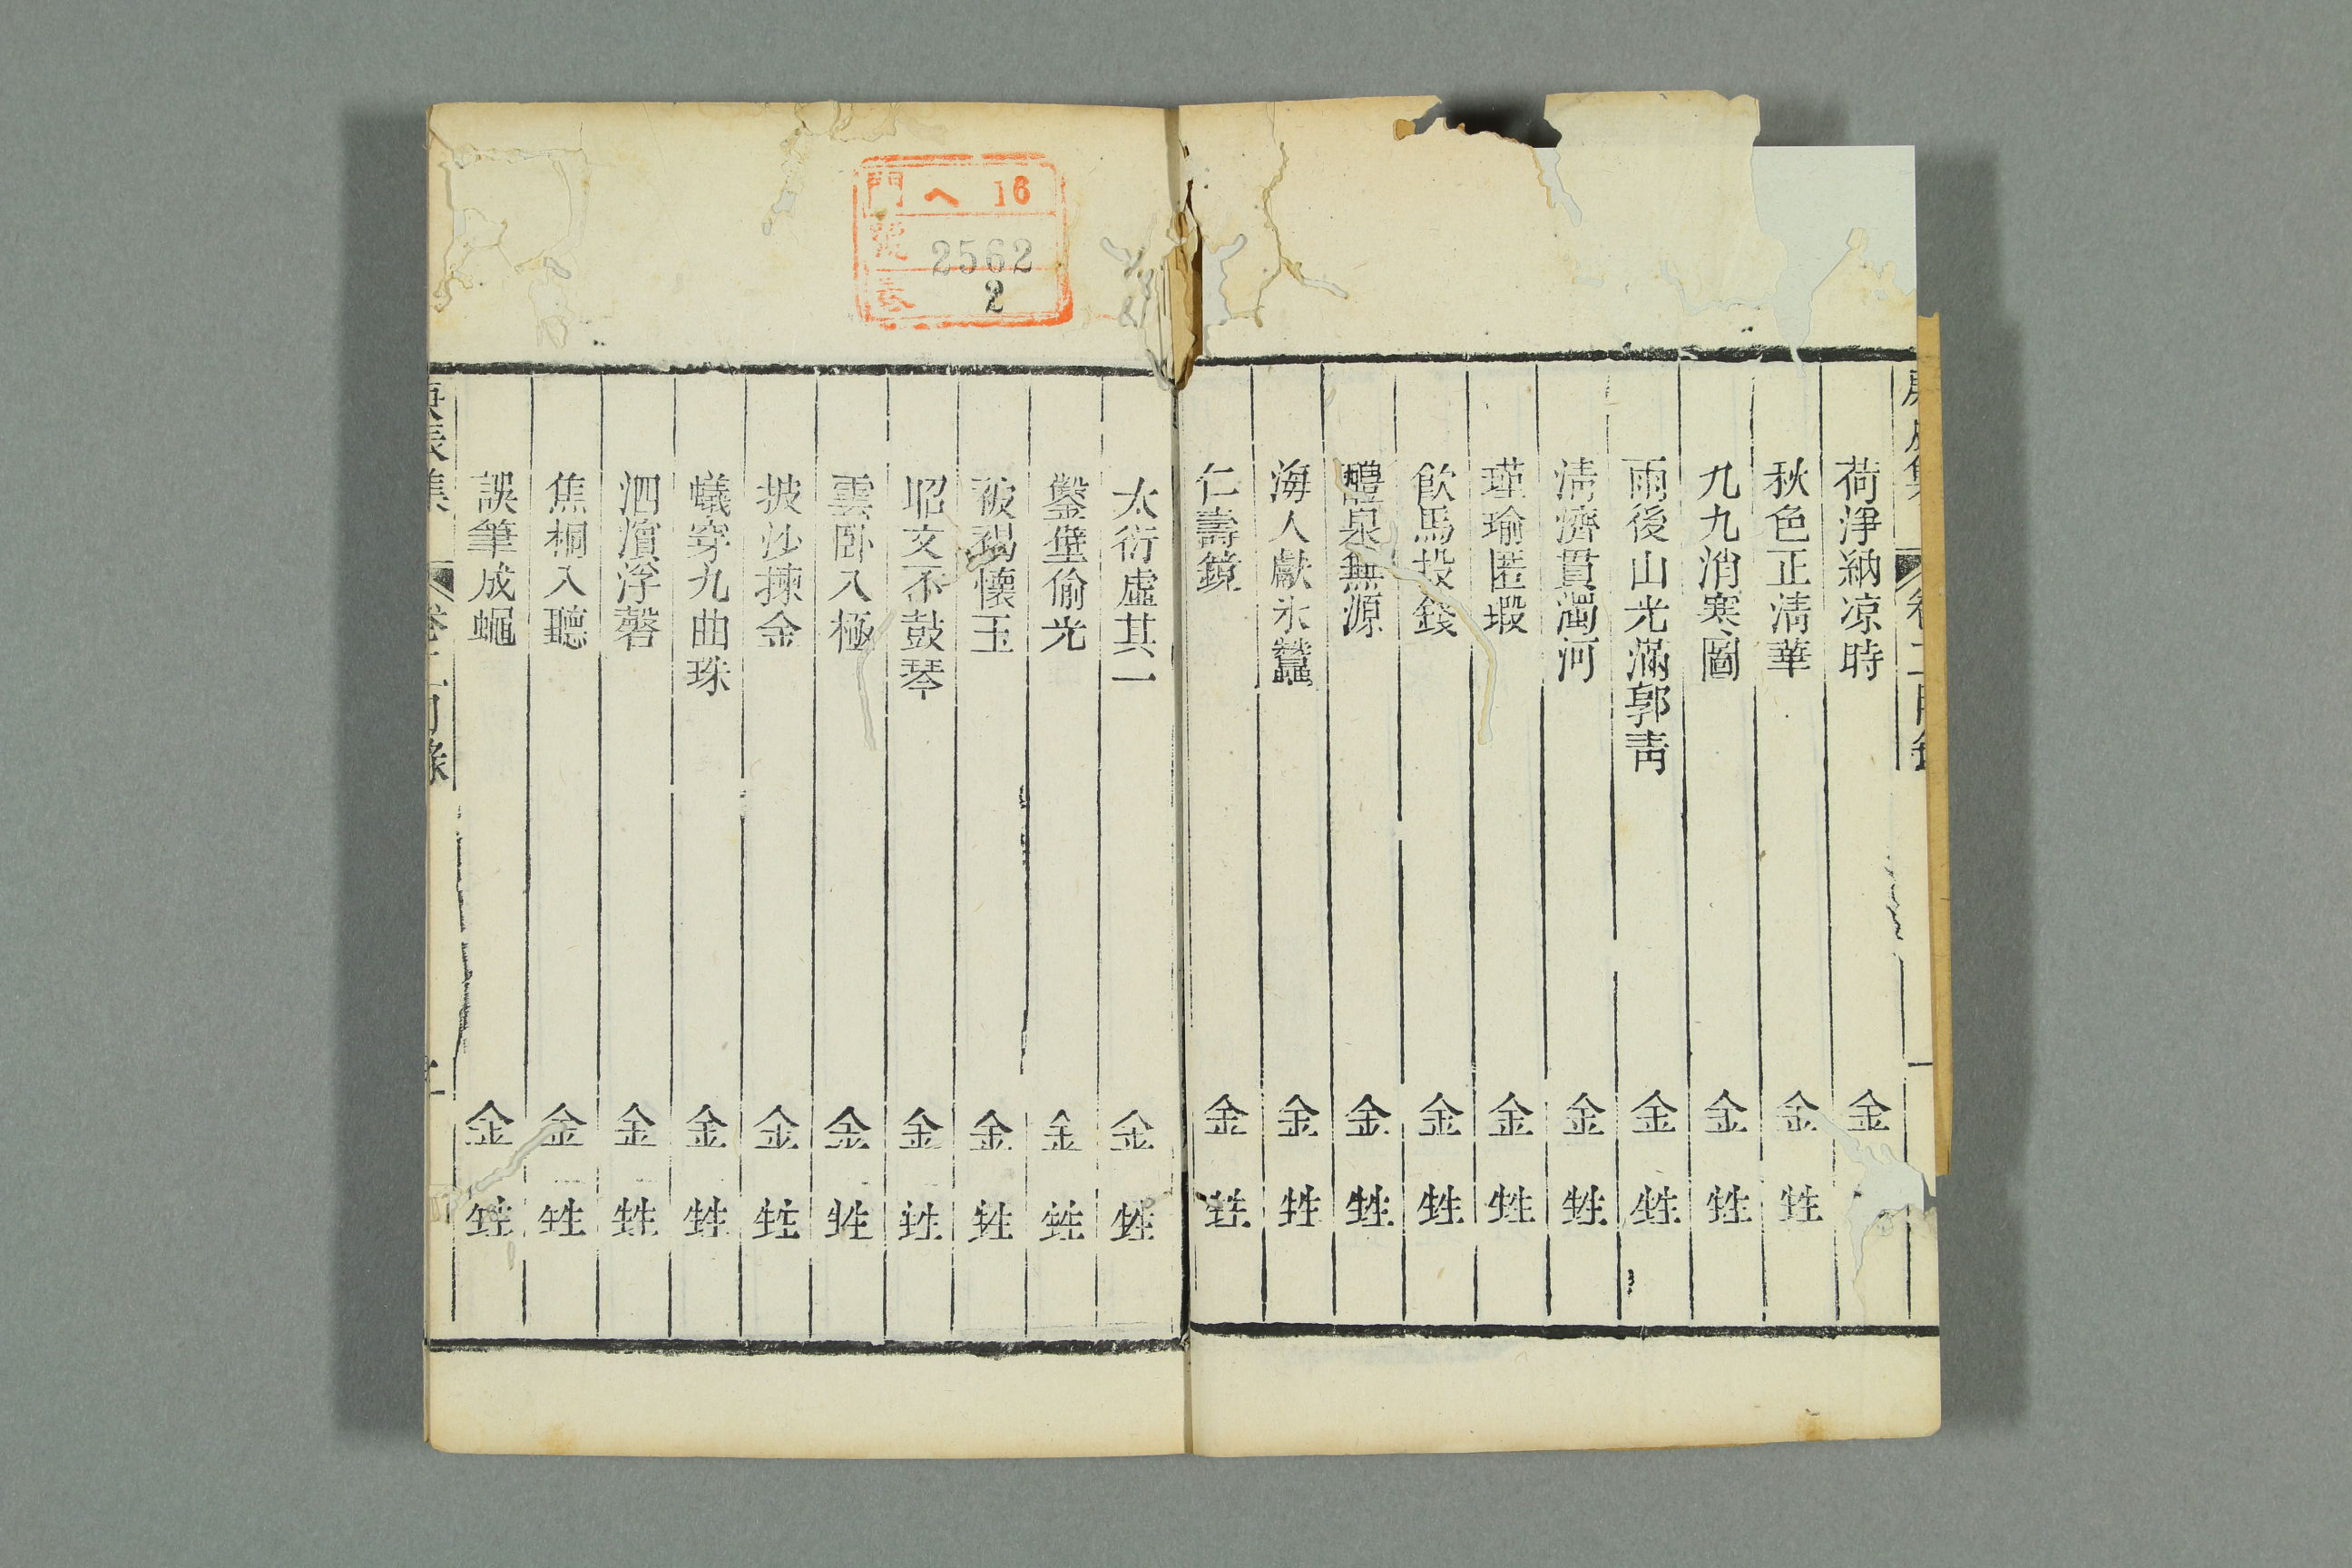 荷淨納凉時　金
秋色正淸華　金　甡
九九消寒圖　金　甡
雨後山光滿郭靑　金　甡
淸濟貫濁河　金　甡
瑾瑜匿瑕　金　甡
飮馬投錢　金　甡
醴泉無源　金　甡
海人獻氷蠶　金　甡
仁壽鏡　金　甡
門 へ 16
號 2562
卷 2
太衍虛其一　金　甡
鑿壁偷光　金　甡
被褐懷玉　金　甡
昭文不鼓琴　金　甡
雲卧八極　金　甡
披沙揀金　金　甡
蟻穿九曲珠　金　甡
泗濱浮磬　金　甡
焦桐入聽　金　甡
誤筆成蠅　金　甡
庚辰集　卷二目錄　二